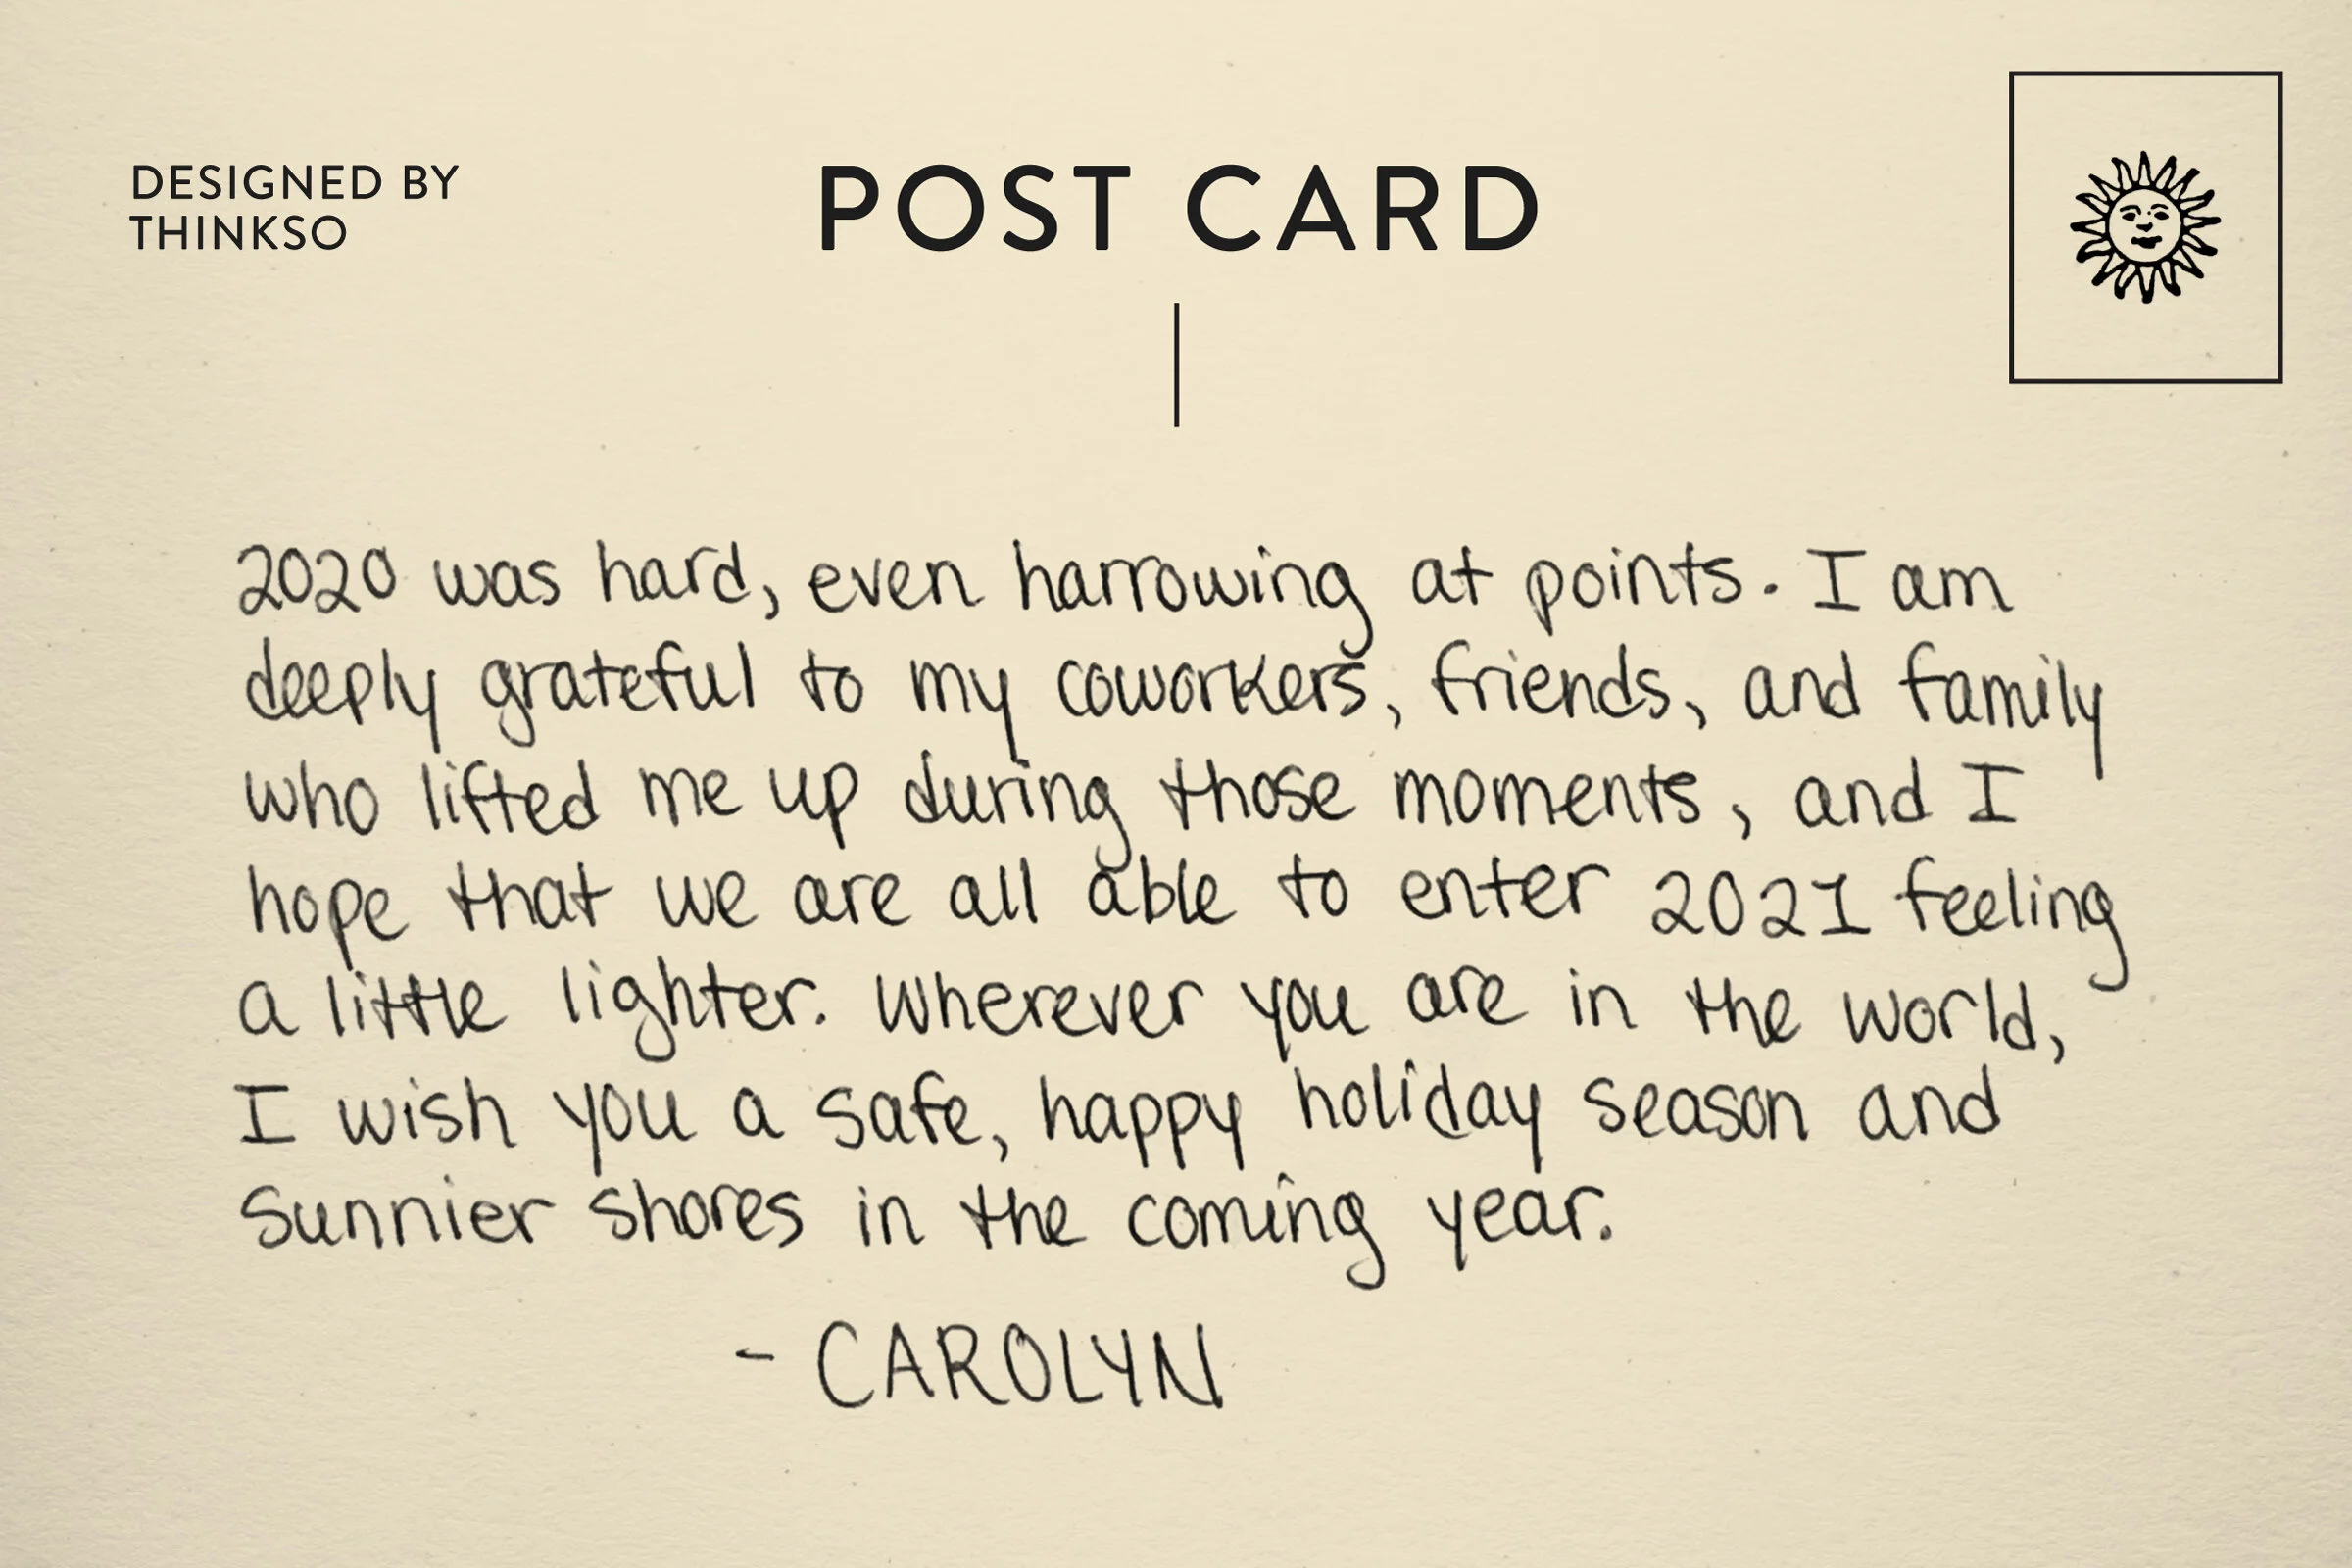 DESIGNED BY
THINKSO
POST CARD
2020 was hard, even harrowing at points. I am
deeply grateful to my coworkers, friends, and family
who lifted me up during those moments, and I
hope that we are all able to enter 2021 feeling
a little lighter. Wherever you are in the world,
I wish you a safe, happy holiday season and
sunnier shores in the coming year.
- CAROLYN